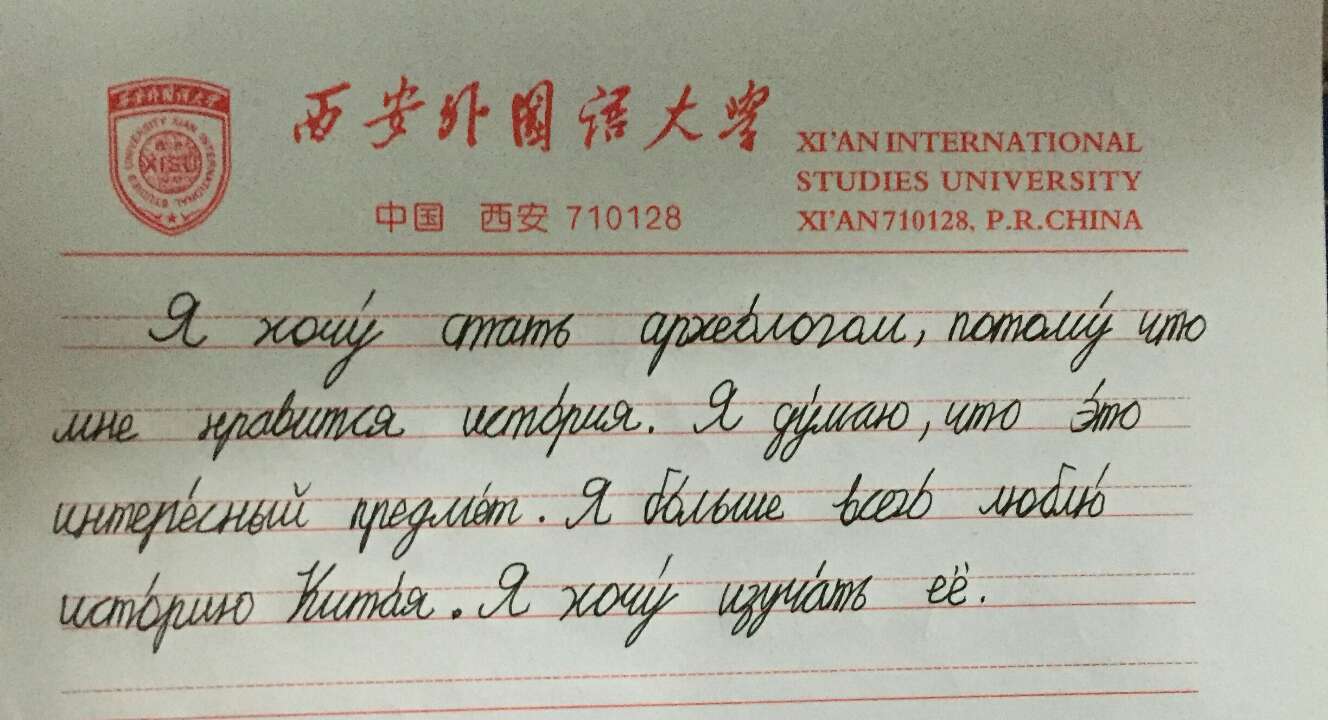 西安外国语大学
XI'AN INTERNATIONAL
STUDIES UNIVERSITY
中国 西安 710128
XI'AN 710128, P.R.CHINA
XISU
Я хочу́ стать архео́логом, потому́ что
мне нравится исто́рия. Я ду́маю, что э́то
интере́сный предме́т. Я бо́льше всего́ люблю́
исто́рию Кита́я. Я хочу́ изуча́ть её.